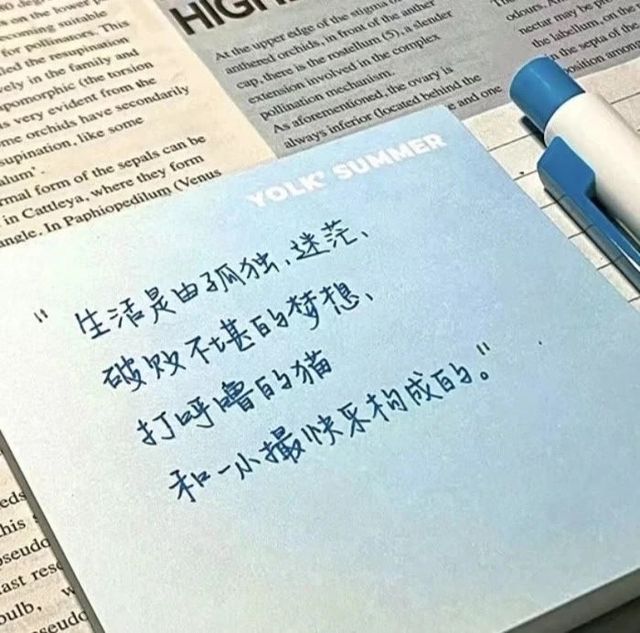 HIGH
At the upper edge of the stigma o
anthered orchids, in front of the anther
cap, there is the rostellum (5), a slender
extension involved in the complex
pollination mechanism.
As aforementioned, the ovary is
always inferior (located behind the
e and one
odours. An
nectar may be p
the labellum, on the
the septa of the
osition among
on the lower p
coming suitable
for pollinators. This
led the resupination
vely in the family and
pomorphic (the torsion
s very evident from the
me orchids have secondarily
supination, like some
alum'.
rmal form of the sepals can be
in Cattleya, where they form
angle. In Paphiopedilum (Venus
YOLK' SUMMER
"生活是由孤独、迷茫、
破败不堪的梦想、
打呼噜的猫
和一小撮快乐构成的。"
eds
his
pseudo
ast res
bulb, w
pseudo